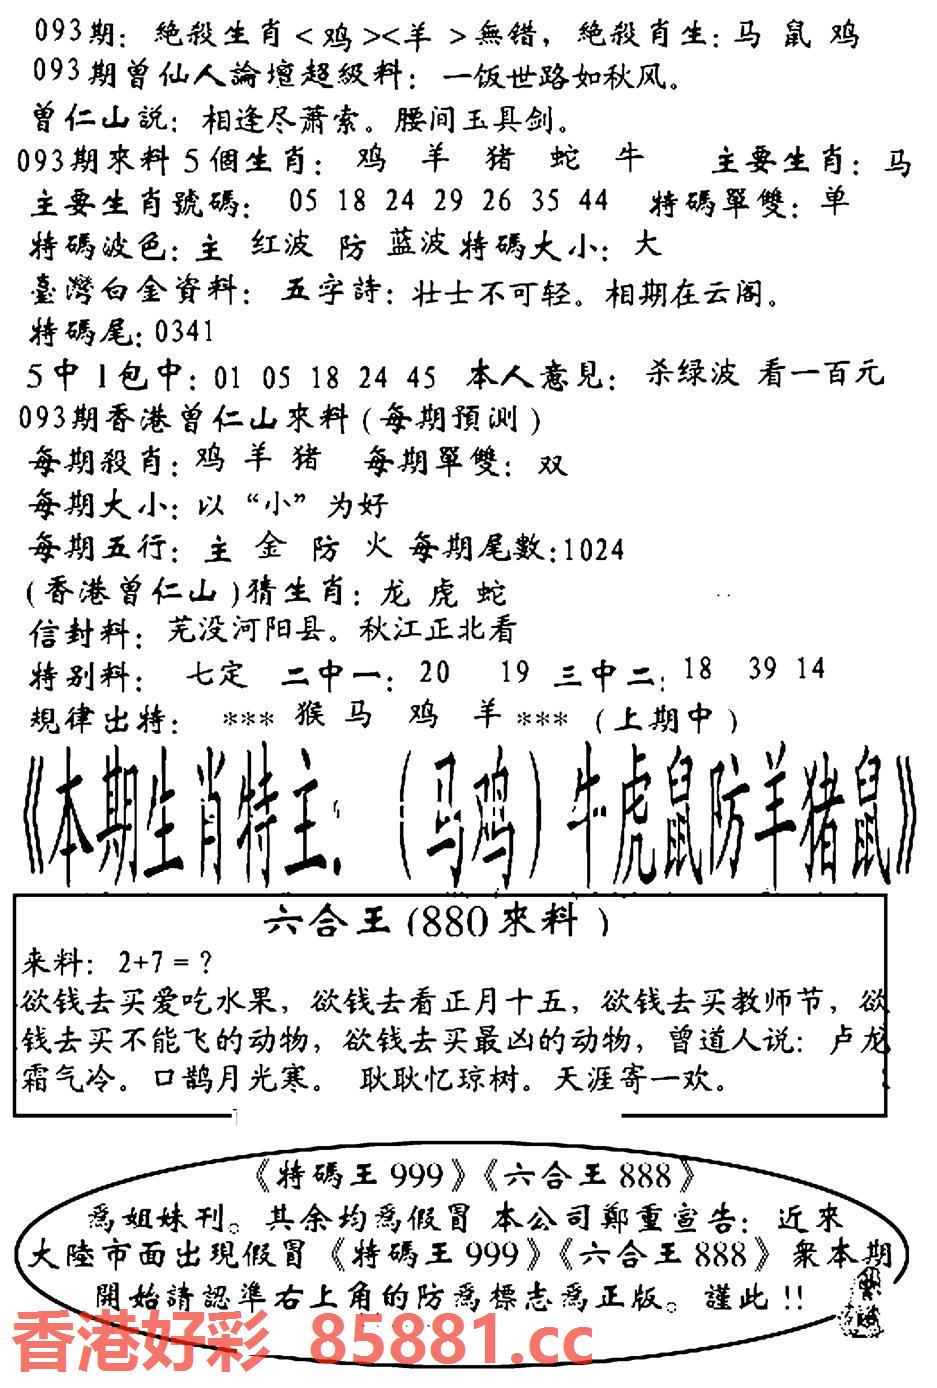 093期: 絶殺生肖<鸡><羊>無错, 絶殺肖生: 马 鼠 鸡
093期曾仙人論壇超級料: 一饭世路如秋风。
曾仁山説: 相逢尽萧索。腰间玉具剑。
093期來料5個生肖: 鸡 羊 猪 蛇 牛 主要生肖: 马
主要生肖號碼: 05 18 24 29 26 35 44 特碼單雙: 单
特碼波色: 主 红波 防 蓝波 特碼大小: 大
臺灣白金資料: 五字詩: 壮士不可轻。相期在云阁。
特碼尾: 0341
5中1包中: 01 05 18 24 45 本人意見: 杀绿波 看一百元
093期香港曾仁山來料(每期預测)
每期殺肖: 鸡 羊 猪 每期單雙: 双
每期大小: 以“小”为好
每期五行: 主 金 防 火 每期尾數: 1024
(香港曾仁山)猜生肖: 龙 虎 蛇
信封料: 芜没河阳县。秋江正北看
特别料: 七定 二中一: 20 19 三中二: 18 39 14
規律出特: *** 猴 马 鸡 羊 *** (上期中)
《本期生肖特主: (马鸡)牛虎鼠防羊猪鼠》
六合王(880來料)
来料: 2+7=?
欲钱去买爱吃水果, 欲钱去看正月十五, 欲钱去买教师节, 欲
钱去买不能飞的动物, 欲钱去买最凶的动物, 曾道人说: 卢龙
霜气冷。口鹊月光寒。 耿耿忆琼树。天涯寄一欢。
《特碼王999》《六合王888》
爲姐妹刊。其余均爲假冒 本公司鄭重宣告: 近來
大陸市面出現假冒《特碼王999》《六合王888》衆本期
開始請認準右上角的防爲標志爲正版。謹此!!
香港好彩 85881.cc